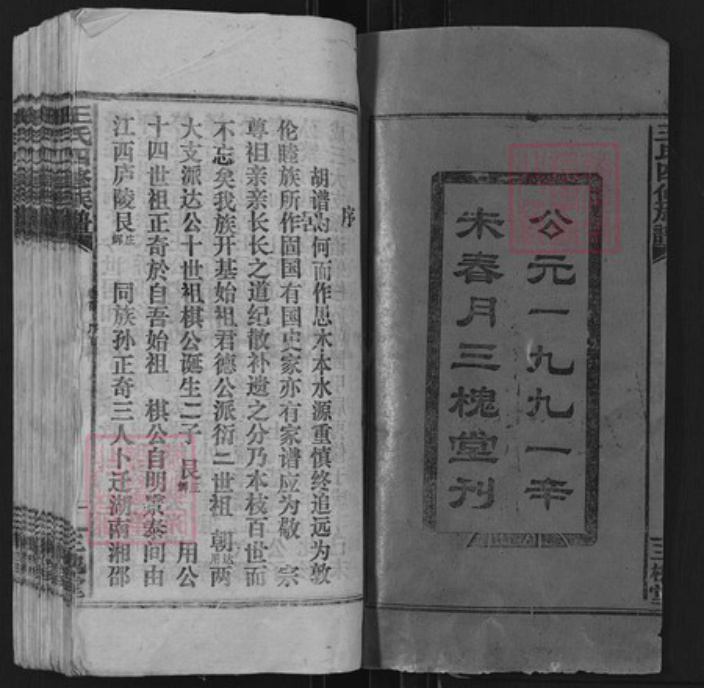 公元一九九一辛
未春月三槐堂刊
三槐堂
序
胡谱为何而作思木本水源重慎终追远为敦
伦睦族所作固国有国史家亦有家谱应为敬 宗
尊祖亲亲长长之道纪散补遗之分乃本枝百世而
不忘矣我族开基始祖君德公派衍二世祖 朝达用两
大支派达公十世祖棋公诞生二子 艮庄解 用公
十四世祖正奇於自吾始祖 棋公自明景泰间由
江西庐陵艮庄解 同族孙正奇三人卜迁湖南湘邵
王氏四修族譜